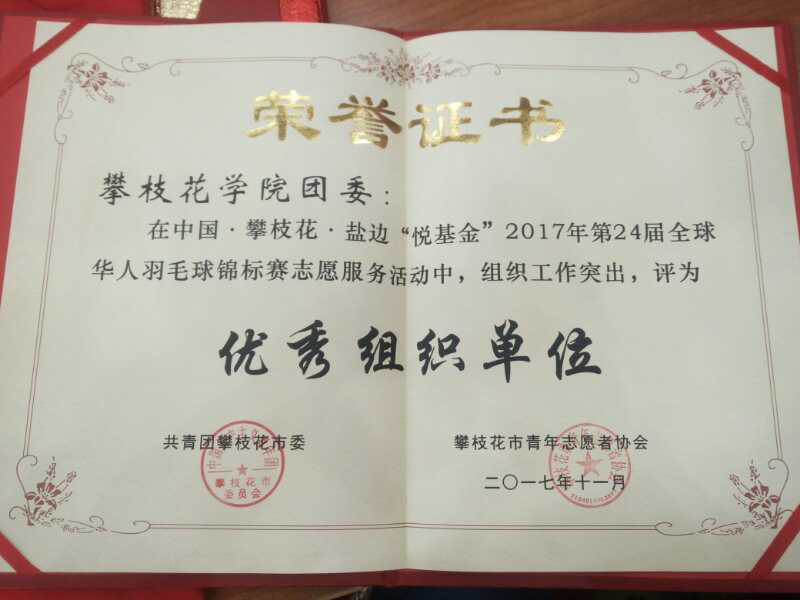 荣誉证书
攀枝花学院团委:
在中国·攀枝花·盐边“悦基金”2017年第24届全球
华人羽毛球锦标赛志愿服务活动中，组织工作突出，评为
优秀组织单位
共青团攀枝花市委
攀枝花市青年志愿者协会
二〇一七年十一月
攀枝花市
委员会